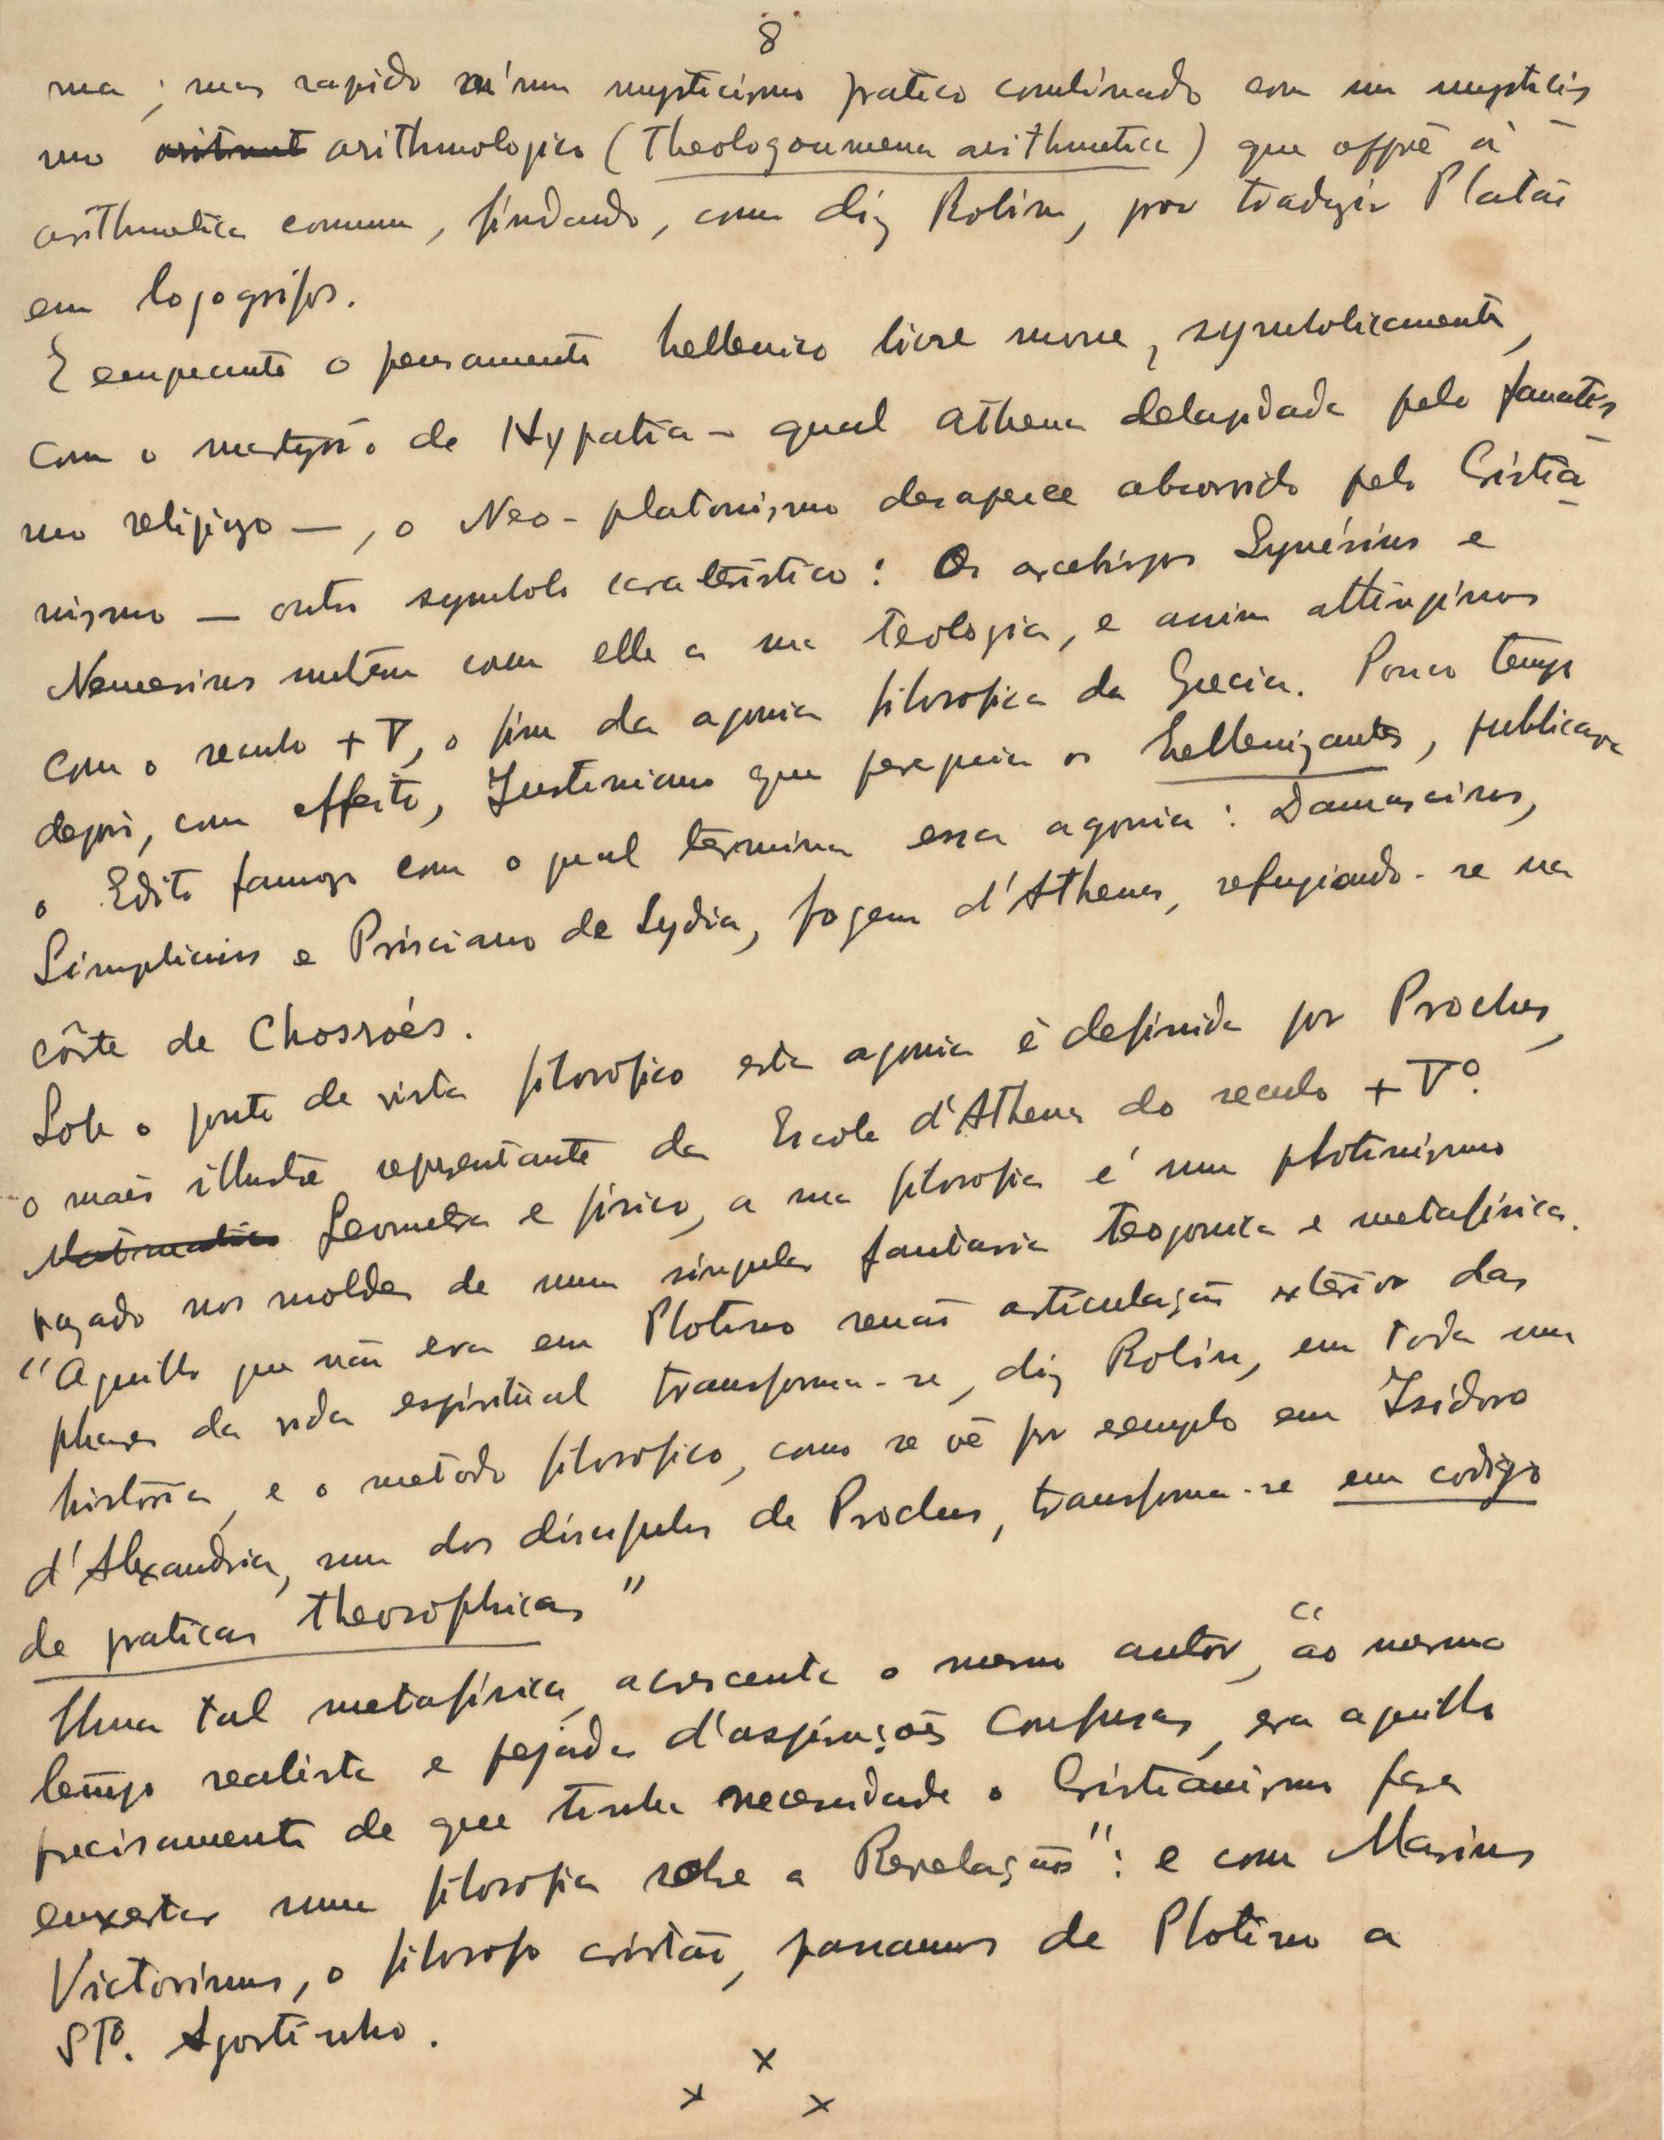 8
ma; mas rapido n'um mysticismo pratico combinado com um mysticis
mo arithmologico (Theologoumena arithmetica) que oppõe á
arithmetica commum, findando, como diz Robin, por traduzir Platão
em logogrifos.
E emquanto o pensamento hellenico livre morre, symbolicamente,
com o martyrio de Hypatia — qual Athena delapidada pelo fanatis
mo religiozo —, o Neo-platonismo desaparece absorvido pelo Cristia
nismo — outro symbolo caracteristico: Os arcebispos Synésius e
Nemesius metem com elle a sua teologia, e assim attingimos
com o seculo + V, o fim da agonia filosofica da Grecia. Pouco tempo
depois, com effeito, Justiniano que perseguia os hellenizantes, publicava
o Edito famozo com o qual termina essa agonia: Damascius,
Simplicius e Prisciano de Lydia, fogem d'Athenas, refugiando-se na
côrte de Chosroés.
Sob o ponto de vista filosofico esta agonia é definida por Proclus,
o mais illustre representante da Escola d'Athenas do seculo + Vº.
Geometra e fisico, a sua filosofia é um plotinismo
vazado nos moldes de uma singular fantasia teogonica e metafisica.
"Aquillo que não era em Plotino senão articulação exterior das
phases da vida espiritual transforma-se, diz Robin, em toda uma
historia, e o metodo filosofico, como se vê por exemplo em Isidoro
d'Alexandria, um dos discipulos de Proclus, transforma-se em codigo
de praticas theosophicas"
Uma tal metafisica, acrescenta o mesmo autor, "ao mesmo
tempo realista e pejada d'aspirações confusas, era aquillo
precisamente de que tinha necessidade o Cristianismo para
enxertar uma filosofia sobre a Revelação": e com Marius
Victorinus, o filosofo cristão, passamos de Plotino a
Stº. Agostinho.
x
x x